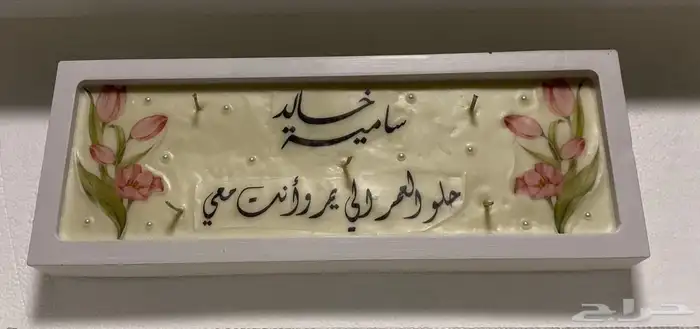 خالد
سامية
حلو العمر الي يمر وأنت معي
حراج